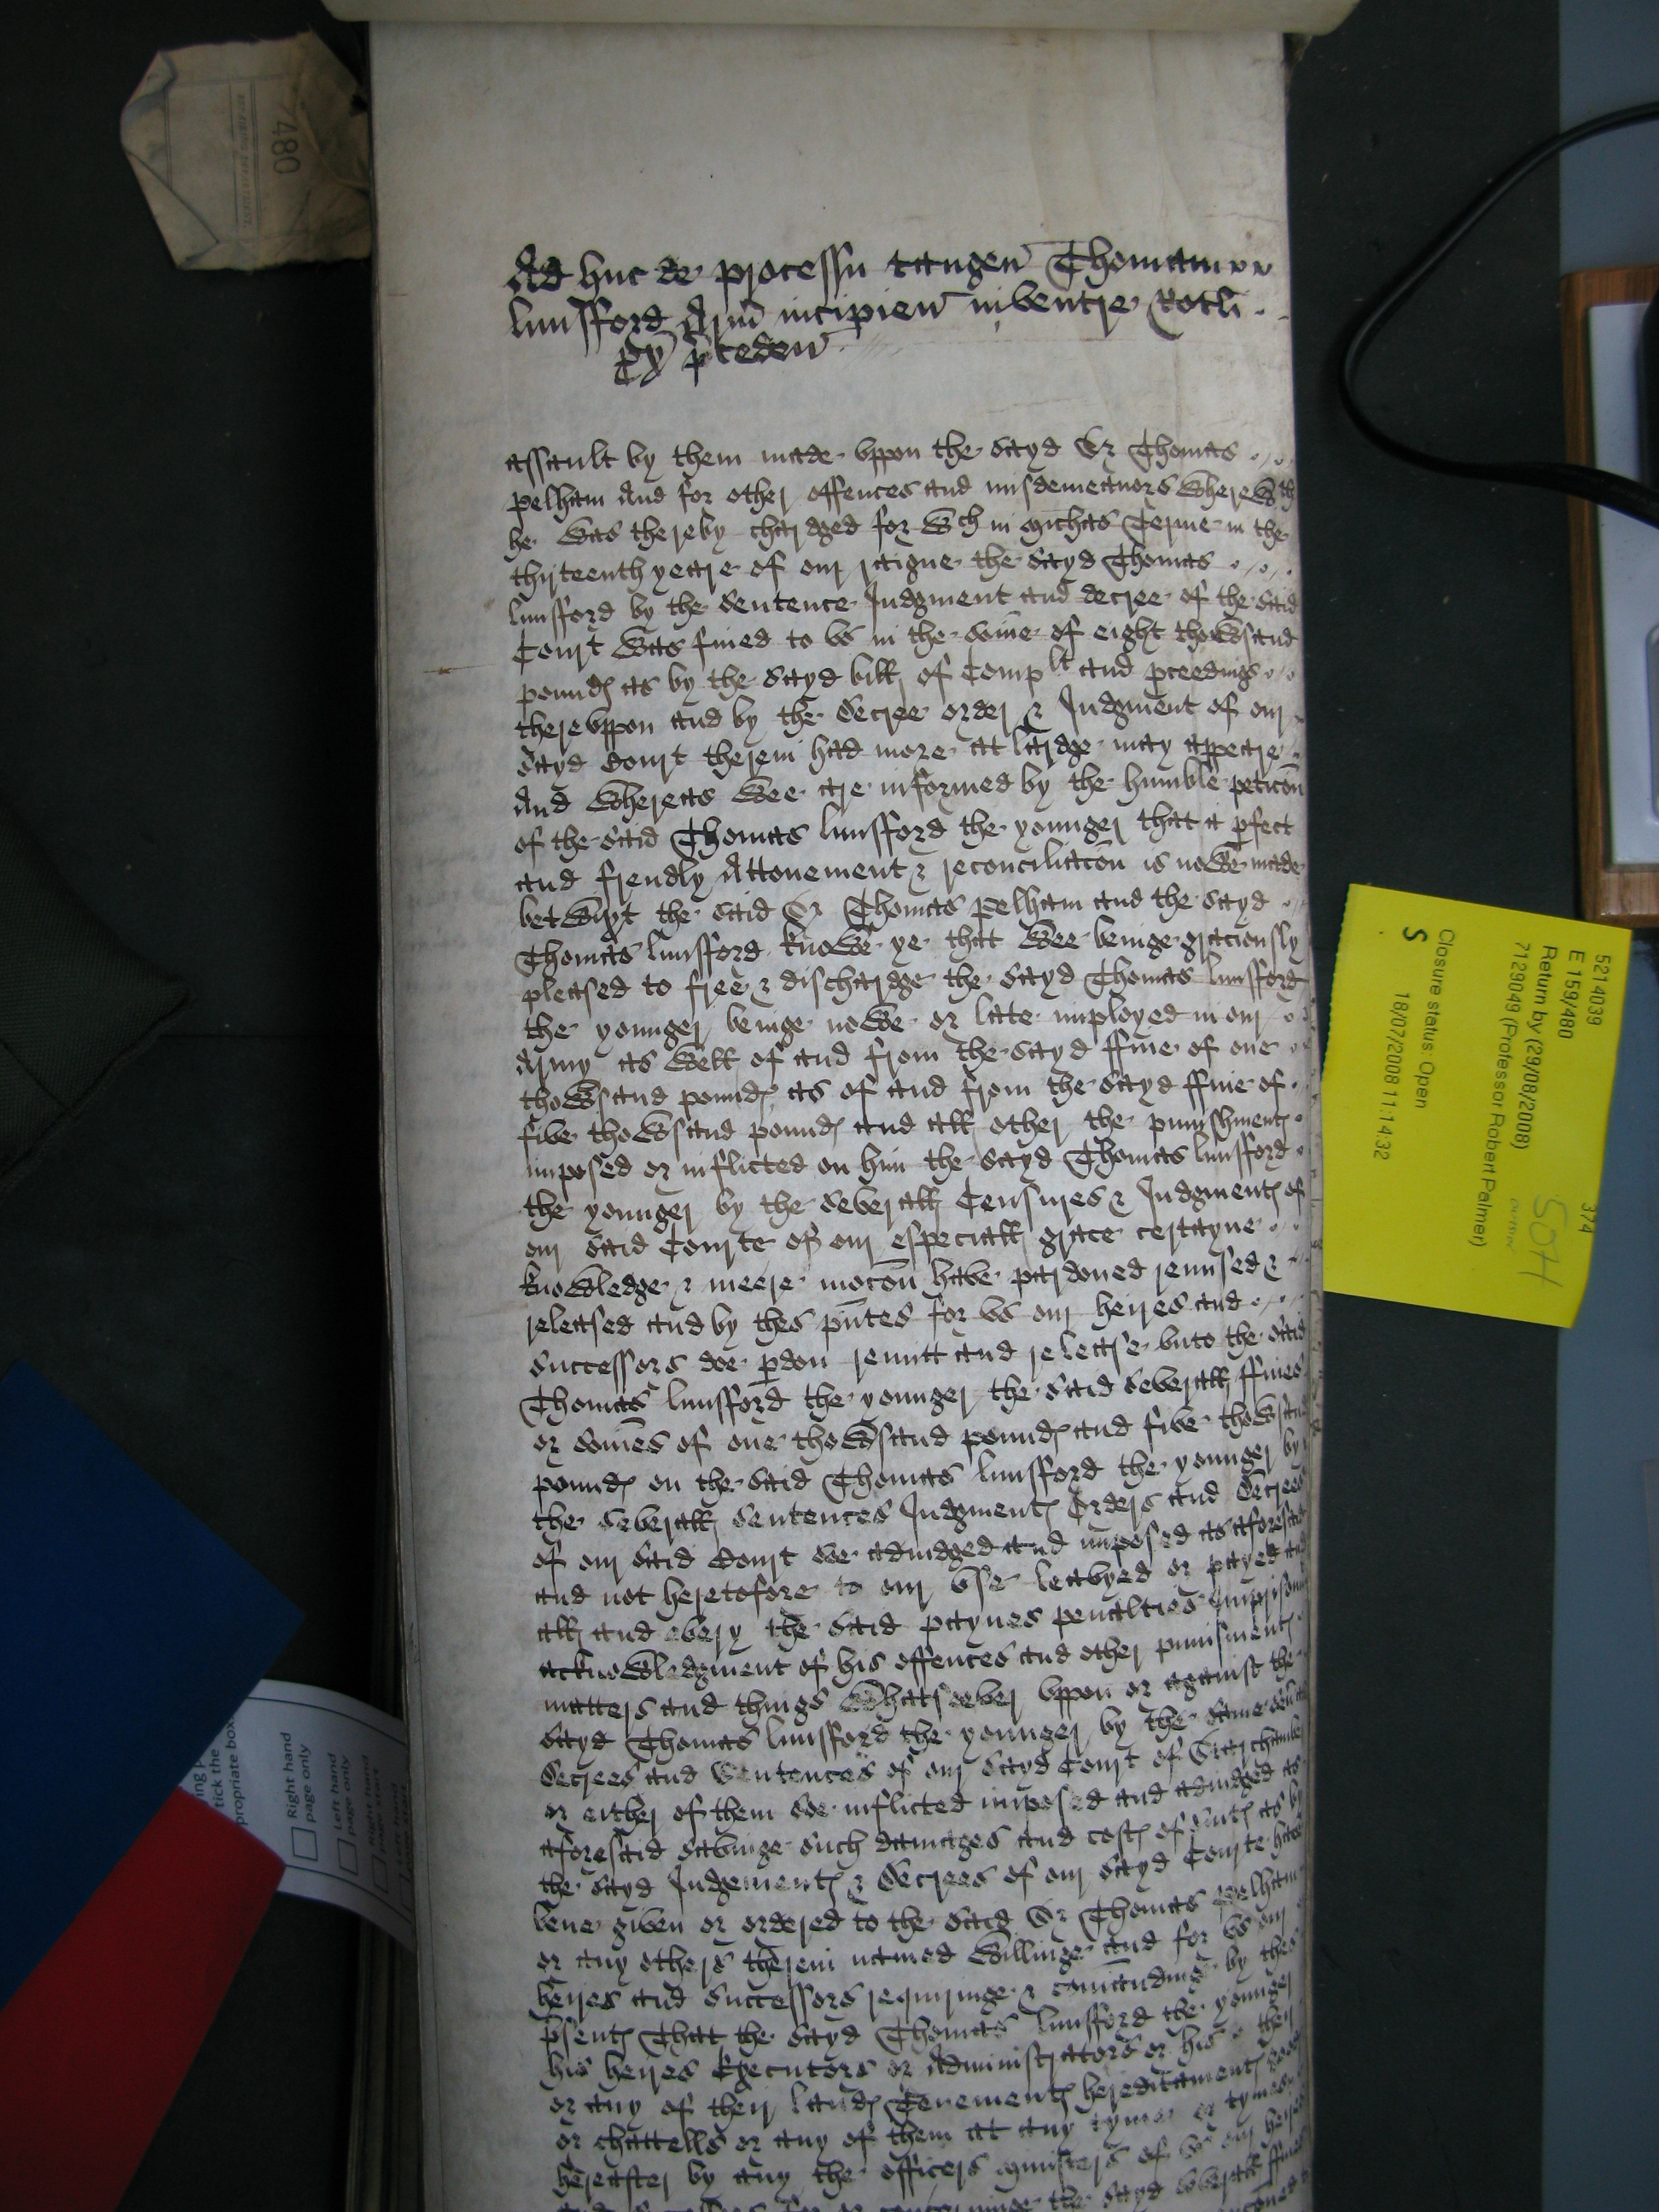 Ad huc de processu tangen Thomam
lunsford Armi incipien in ventre Rotli
xxx preceden
assault by them made vppon the sayd Sr Thomas
pelham And for other offences and misdemeanors wherewth
he was thereby chardged for wch in michas Terme in the
thirteenth yeare of our raigne the sayd Thomas
lunsford by the Sentence Judgment and decree of the said
Court was fined to vs in the some of eight thowsand
pounds as by the sayd bill of Complt and pceedings
therevppon and by the decree order & Judgment of our
sayd Court therein had more at lardge may appeare
And whereas wee are informed by the humble peticon
of the said Thomas lunsford the younger that a pfect
and frendly Attonement & reconciliacon is nowe made
betwixt the said Sr Thomas pelham and the sayd
Thomas lunsford knowe ye that wee beinge graciously
pleased to free & dischardge the sayd Thomas lunsford
the younger beinge nowe or late imployed in our
Army as well of and from the sayd ffine of one
thowsand pounds as of and from the sayd ffine of
five thowsand pounds and all other the punishments
imposed or inflicted on him the sayd Thomas lunsford
the younger by the severall Censures & Judgments of
our said Courte of our especiall grace certayne
knowledge & meere mocon have pardoned remised &
released and by thes pntes for vs our heires and
successors doe pdon remitt and release vnto the said
Thomas lunsford the younger the said severall ffines
or somes of one thowsand pounds and five thowsand
pounds on the said Thomas lunsford the younger by
the severall sentences Judgments Orders and decrees
of our said Court soe adiudged and imposed as aforesaid
and not heretofore to our vse leavyed or payed and
all and every the said paynes penalties
acknowledgment of his offences and other punisments
matters and things whatsoever vppon or against the
sayd Thomas lunsford the younger by the same
decrees and sentences of our sayd Court of Starchamber
or either of them soe inflicted imposed and adiudged as
aforesaid savinge such damages and costs of suits as by
the sayd Judgements & decrees of our sayd Courte have
bene given or ordered to the said Sr Thomas pelham
or any others therein named willinge and for vs our
heires and successors requiringe & comanding by thes
psents That the sayd Thomas lunsford the younger
his heires Executors or Administrators or his or their
or any of their lands Tenements hereditaments goods
or chattells or any of them at any tyme or tymes
hereafter by any the officers ministers of vs our heires
480
5214039
E 159/480
Return by (29/08/2008)
7129049 (Professor Robert Palmer)
Closure status: Open
S
18/07/2008 11:14:32
374
tick the
propriate box
Right hand
page only
Left hand
page only